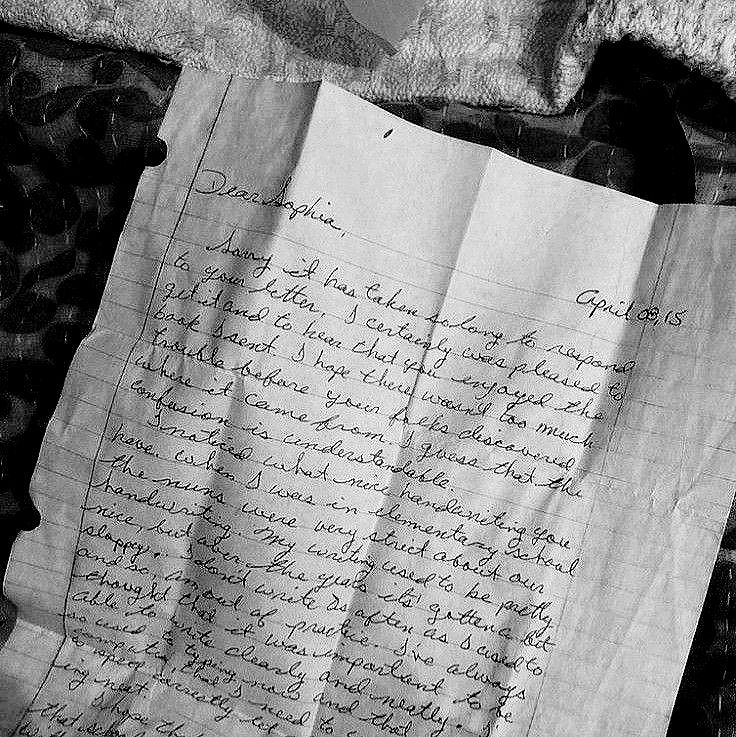 Dear Sophia,
April 09,15
Sorry it has taken so long to respond
to your letter. I certainly was pleased to
get it and to hear that you enjoyed the
book I sent. I hope there wasn't too much
trouble before your folks discovered
where it came from. I guess that the
confusion is understandable.
I noticed what nice handwriting you
have. When I was in elementary school
the nuns were very strict about our
handwriting. My writing used to be pretty
nice, but over the years its gotten a bit
sloppy. I don't write as often as I used to
and so, am out of practice. I've always
thought that it was important to be
able to write clearly and neatly. I'm
so used to typing now and that
computer, that I need to
to speak correctly let
ing neat.
I hope the
that school